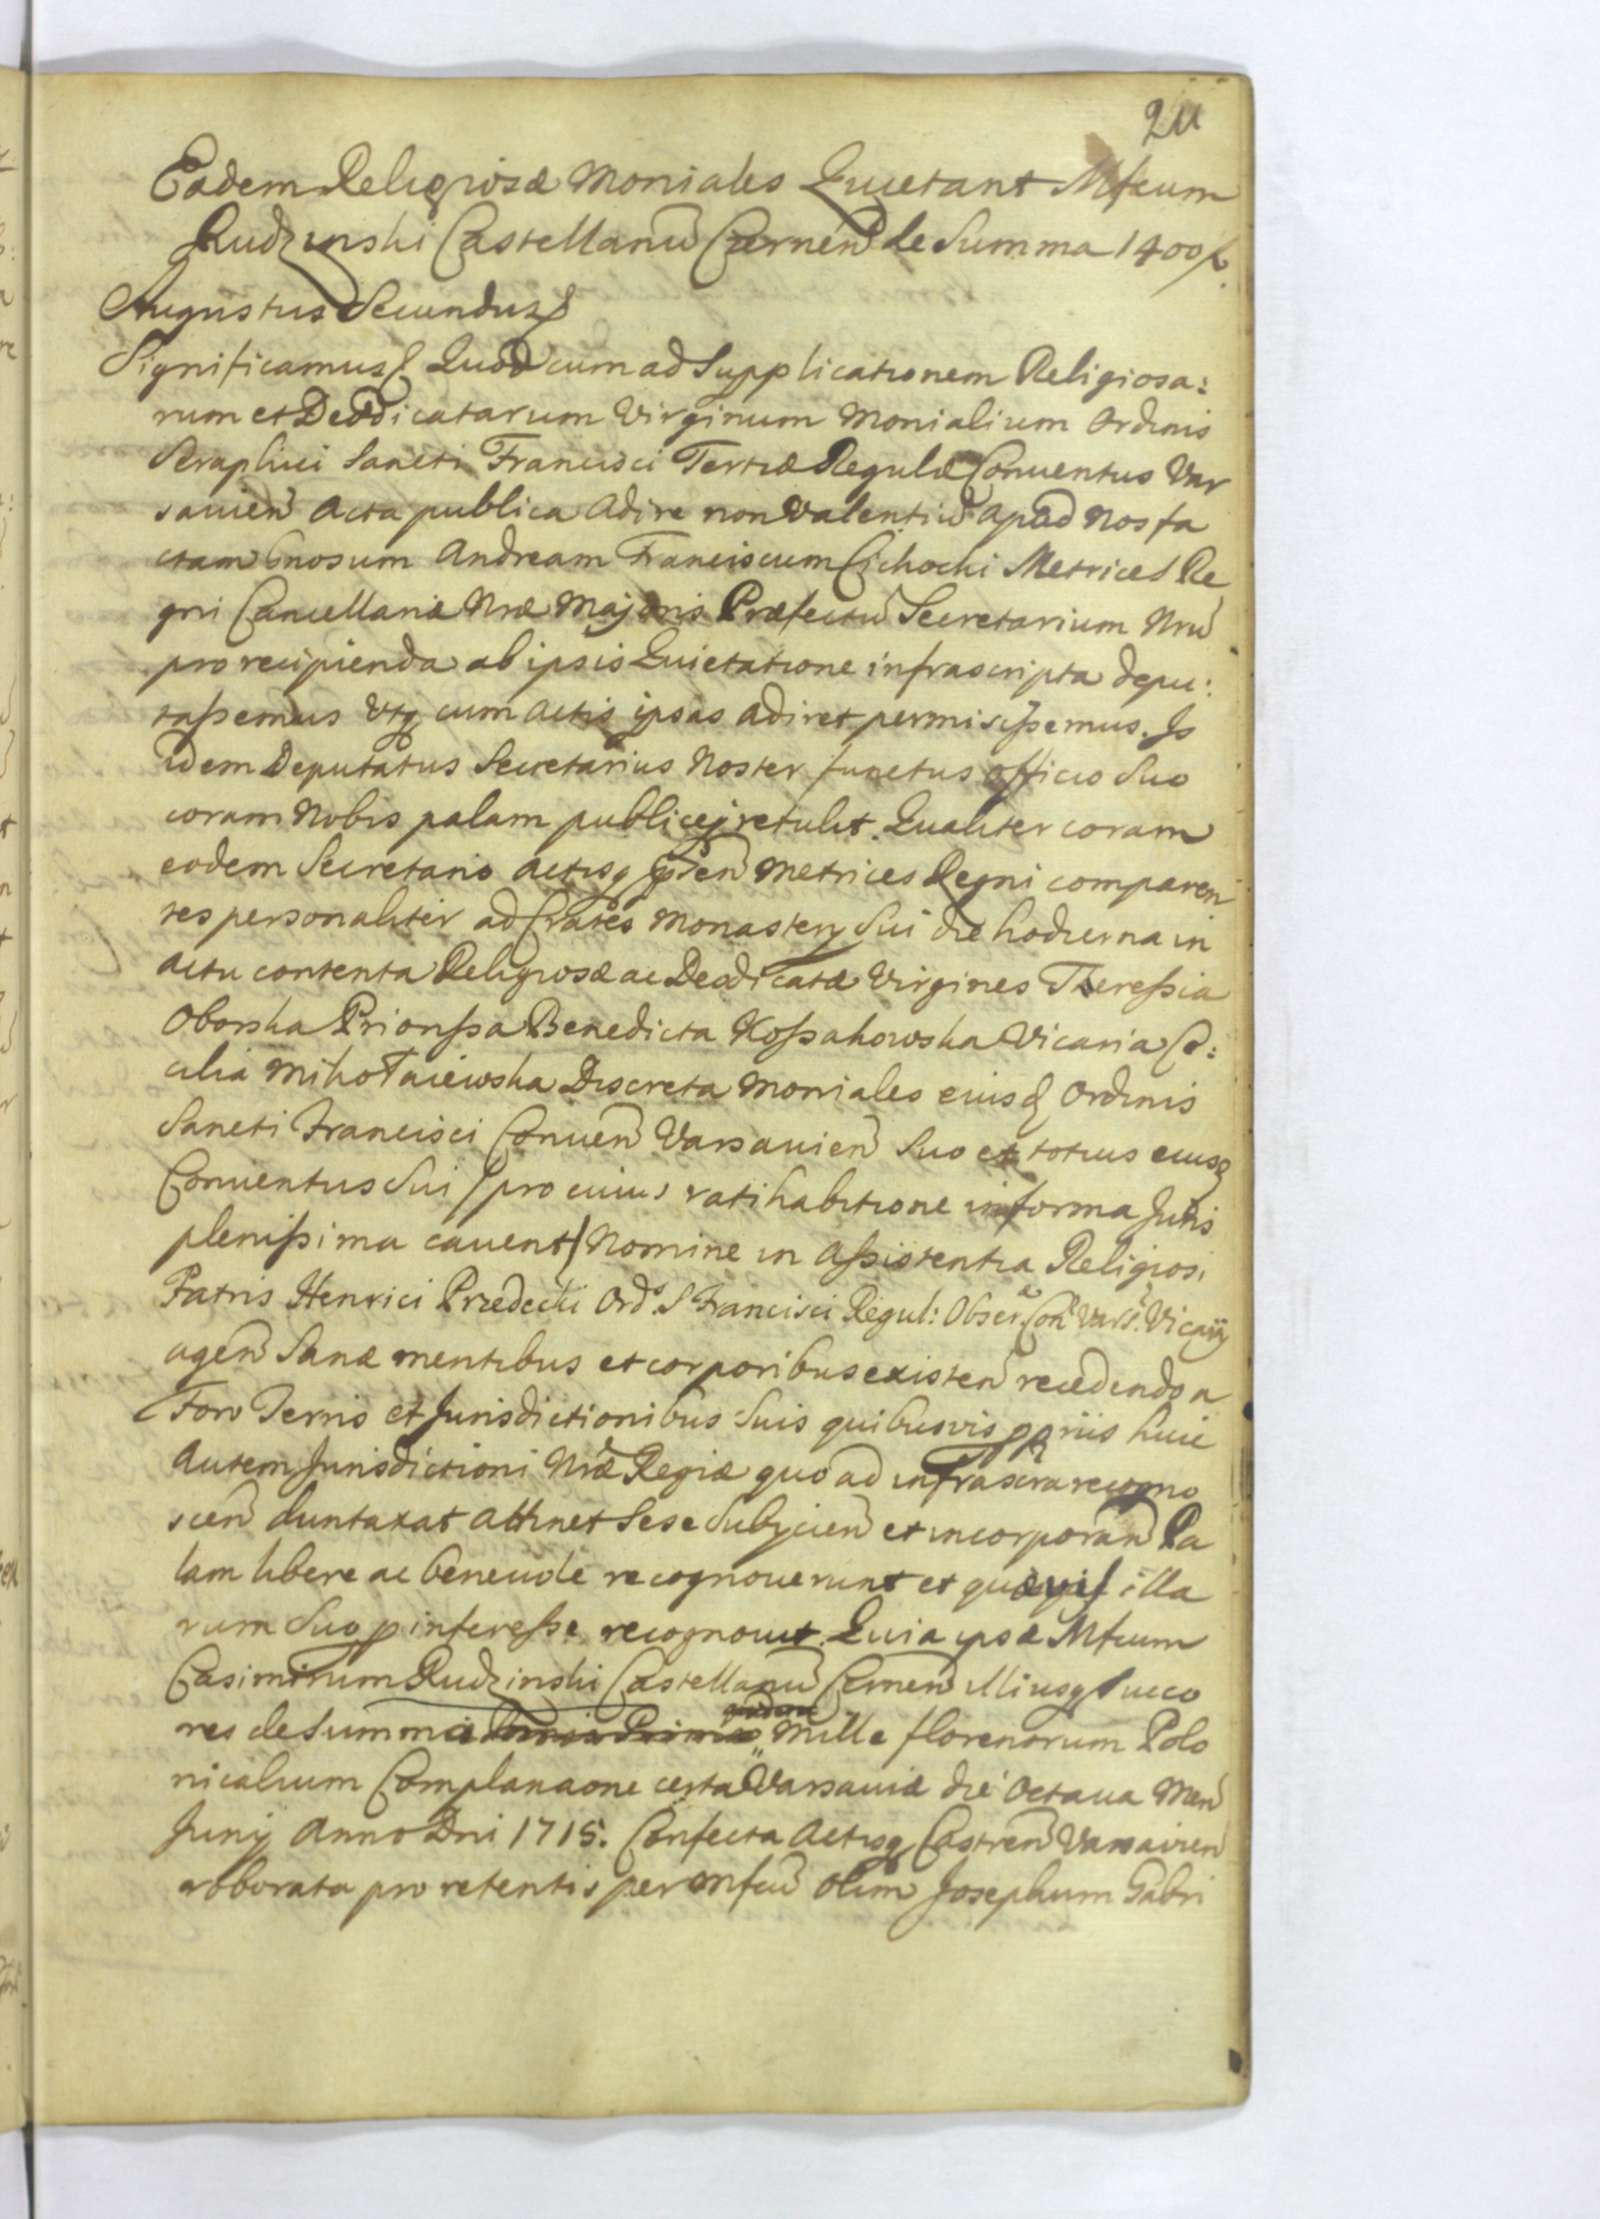 211
Eadem Religiosæ Moniales Quietant Mfcum
Rudzinski Castellanū Czernen̄ de Summa 1400 f.
Augustus Secundus &
Significamus & Quod cum ad Supplicationem Religiosa:
rum et Deodicatarum Virginum Monialium Ordinis
Seraphici Sancti Francisci Tertiæ Regulæ Conuentus Var
sauien̄ Acta publica Adire non Valentiū apud Nos fa
ctam Gnosum Andream Franciscum Cichocki Metrices Re
gni Cancellariæ Nræ Majoris Præfectū Secretarium Nrū
pro recipienda ab ipsis Quietatione infrascripta depu:
tassemus Utq cum Actis ipsas adiret permisissemus. Is
idem Deputatus Secretarius Noster functus officio Suo
coram Nobis palam publiceq retulit. Qualiter coram
eodem Secretario Actisq pñten̄ Metrices Regni comparen
tes personaliter ad Crates Monastery Sui die hodierna in
actu contenta Religiosæ ac Deodicatæ Virgines Theressia
Oborska Priorissa Benedicta Kossakowska Vicaria Ce:
cilia Mikołaiewska Discreta Moniales eiusd Ordinis
Sancti Francisci Conuen̄ Varsauien̄ Suo et totius eiusd
Conuentus Sui /pro cuius ratihabitione in forma Juris
plenissima cauent/ Nomine in Assistentia Religiosi
Patris Henrici Przedecki Ord. S Francisci Regul: Obser. Con Vars. Vicarij
agen̄ Sanæ mentibus et corporibus existen̄ recedendo a
Foro Terris et Jurisdictionibus Suis quibusvis ppriis huic
Autem Jurisdictioni Nræ Regiæ quo ad infrascrā recogno
scen̄ duntaxat attinet Sese Subijcien̄ et incorporan̄ Pa
lam libere ac beneuole recognouerunt et quævis illa
rum Suo p interesse recognouit. Quia ipsæ Mfcum
Casimirum Rudzinski Castellanū Czernen̄ illiusq Succo
res de Summa Mille florenorum Polo
nicalium Complanaone certa Varsauiæ die Octaua Men̄
Junij Anno Dni 1715. Confecta Actisq Castren̄ Varsauien̄
roborata pro retentis per Mfcū olim Josephum Gabri